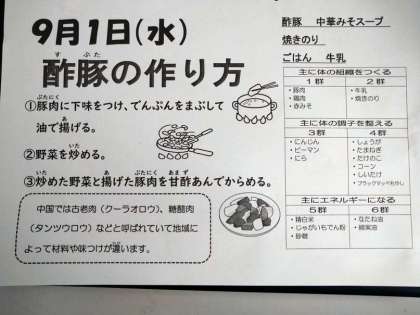 9月1日(水)
酢豚の作り方
すぶた
①豚肉に下味をつけ、でんぷんをまぶして
ぶたにく
油で揚げる。
あ
②野菜を炒める。
いた
③炒めた野菜と揚げた豚肉を甘酢あんでからめる。
いた あ ぶたにく あまず
中国では古老肉(クーラオロウ)、糖醋肉
(タンツウロウ)などと呼ばれていて地域に
よって材料や味つけが違います。
酢豚 中華みそスープ
焼きのり
ごはん 牛乳
主に体の組織をつくる
1群 2群
・豚肉 ・牛乳
・鶏肉 ・焼きのり
・赤みそ
主に体の調子を整える
3群 4群
・にんじん ・しょうが
・ピーマン ・たまねぎ
・にら ・たけのこ
・コーン
・しいたけ
・ブラックマッペもやし
主にエネルギーになる
5群 6群
・精白米 ・なたね油
・じゃがいもでん粉 ・綿実油
・砂糖